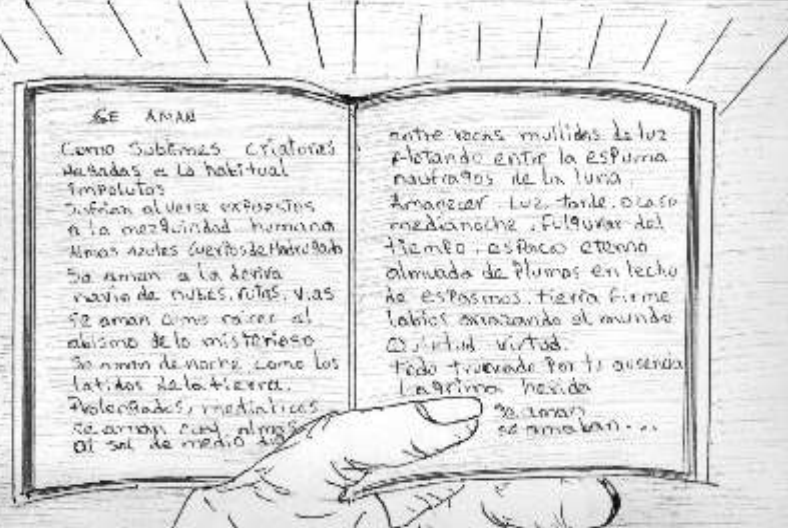 SE AMAN
Como Sublimes criaturas
Negadas a lo habitual
Impolutos
Sufrian al verse expuestos
a la mezquindad humana
Almas azules cuerpos de Madrugada
Se aman a la deriva
navio de nubes, rutas, vias
se aman como raices al
abismo de lo misterioso
Se aman de noche como los
latidos de la tierra.
Prolongados, mediaticos
se aman cual almas
al sol de medio dia
entre rocas mullidas de luz
flotando entre la espuma
naufragos de la luna.
Amanecer. Luz, tarde, ocaso
medianoche, Fulgurar del
tiempo, espacio eterno
almuada de Plumas en lecho
de espasmos, tierra firme
labios abrazando el mundo
Quietud virtud.
todo truncado Por tu ausencia
Lagrima herida
se aman
se amaban...